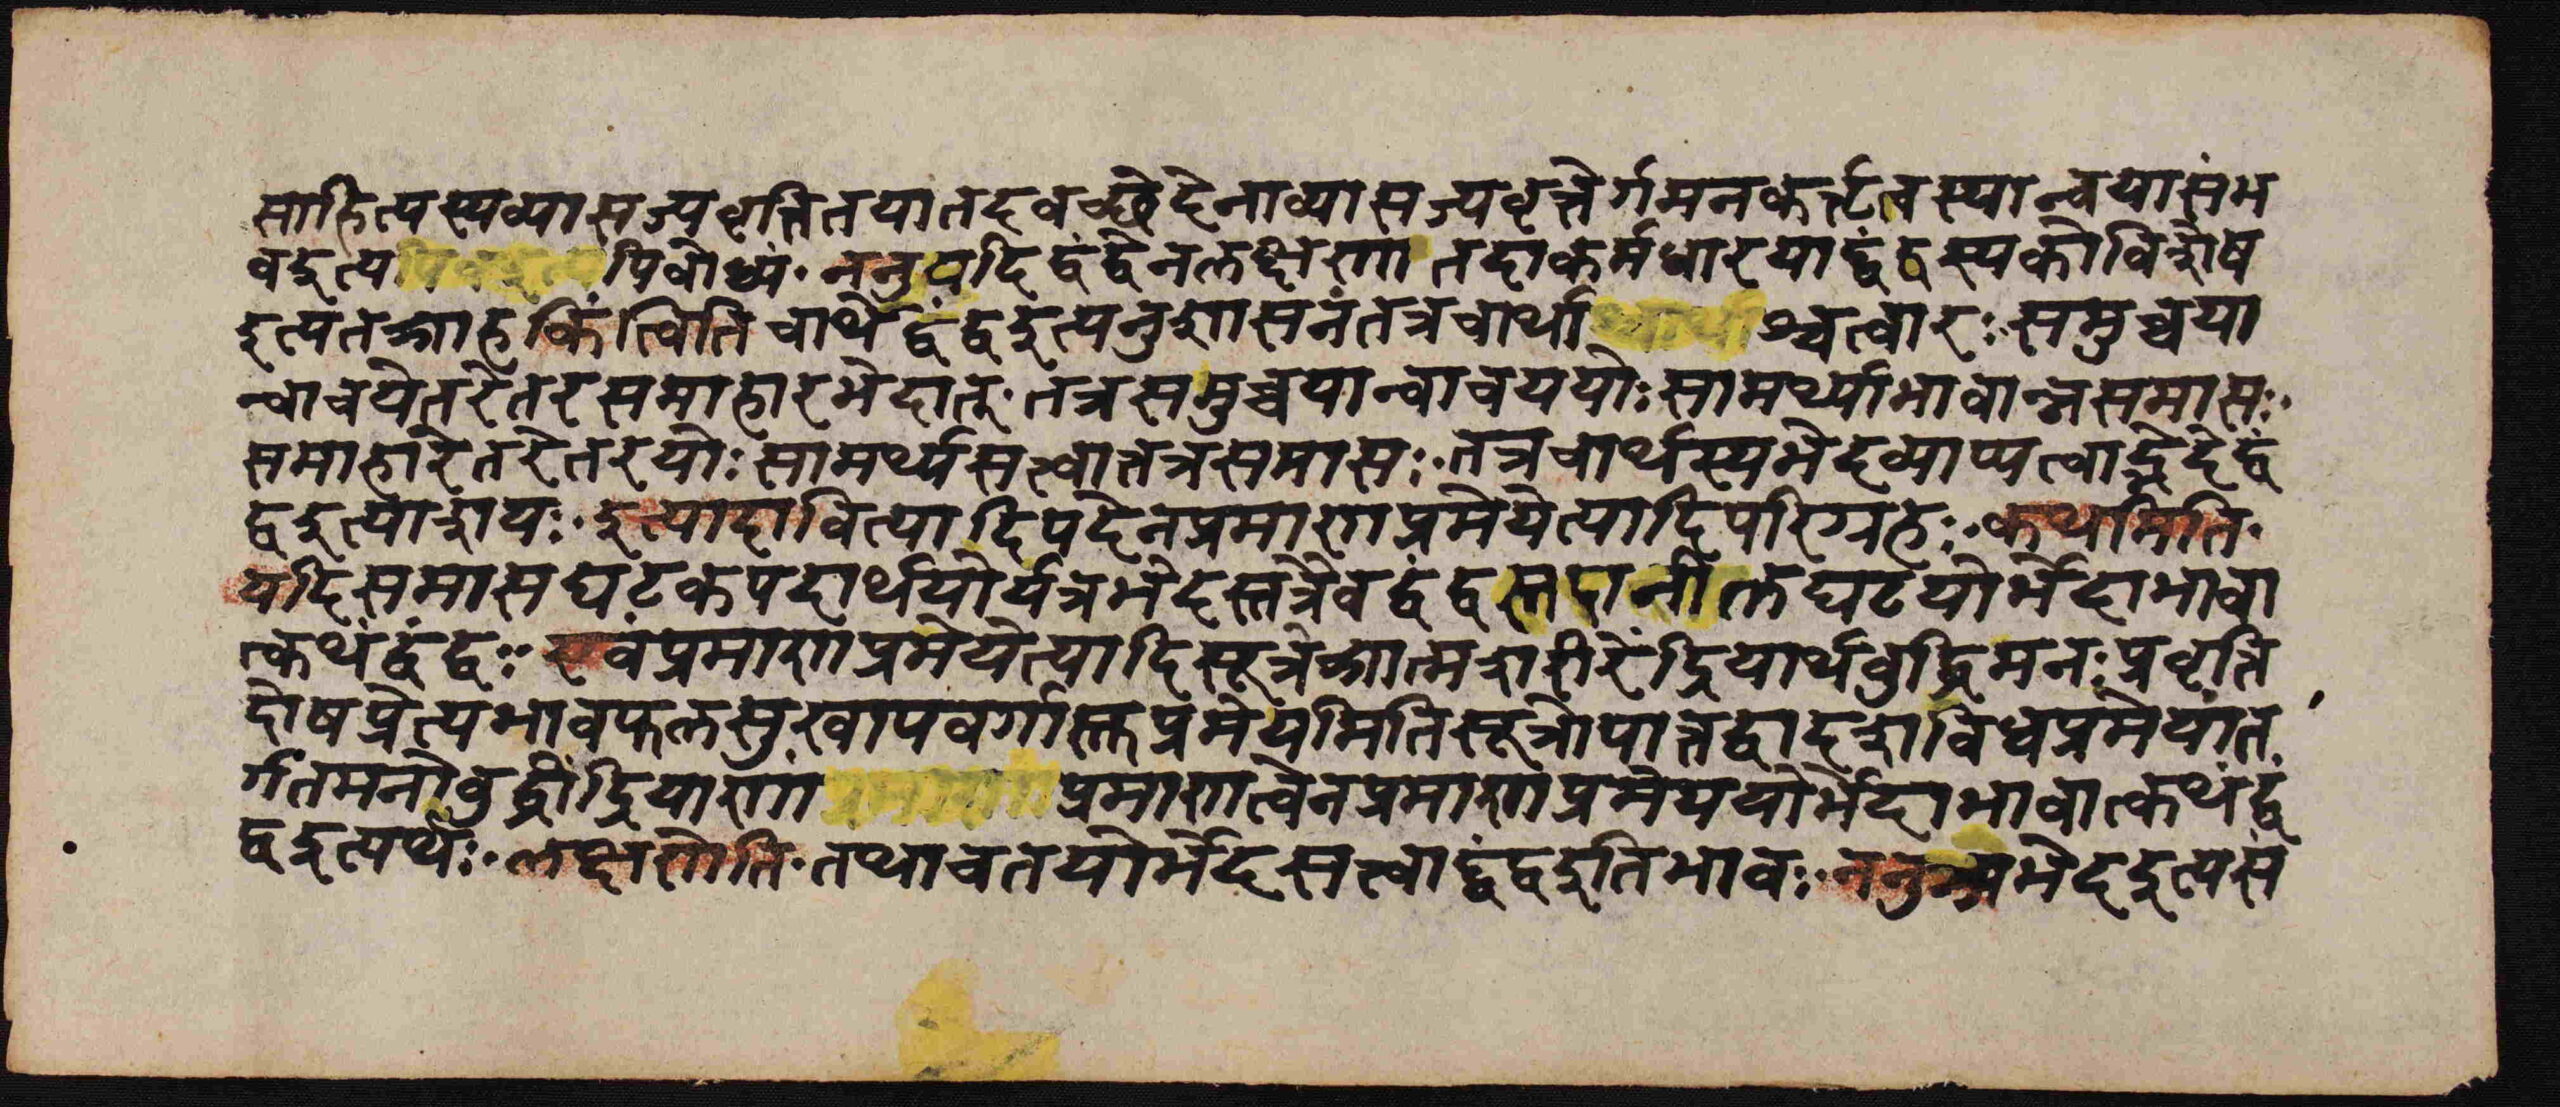 साहित्यस्यव्यासज्यवृत्तितयातदवच्छेदेनाव्यासज्यवृत्तेर्गमनकर्त्तृत्वस्यान्वयासंभ
वइत्यपिबोध्यं॰ननुयदिद्वंद्वेनलक्षणा तदाकर्मधारयाद्द्वंद्वस्यकोविशेष
इत्यतआहकिंत्वितिचार्थेद्वंद्वइत्यनुशासनंतत्रचार्थाश्चत्वारःसमुच्चया
न्वाचयेतरेतरसमाहारभेदात्॰तत्रसमुच्चयान्वाचययोःसामर्थ्याभावान्नसमासः॰
समाहारेतरेतरयोःसामर्थ्यसत्त्वात्तत्रसमासः॰तत्रचार्थस्यभेदव्याप्यत्वाद्भेदेद्वं
द्वइत्याशयः॰इत्यादावित्यादिपदेनप्रमाणप्रमेयेत्यादिपरिग्रहः॰कथमिति॰
यदिसमासघटकपदार्थयोर्यत्रभेदस्तत्रैवद्वंद्वस्तदानीलघटयोर्भेदाभावा
त्कथंद्वंद्वः॰एवंप्रमाणप्रमेयेत्यादिसूत्रेआत्मशरीरेंद्रियार्थबुद्धिमनःप्रवृत्ति
दोषप्रेत्यभावफलसुखापवर्गास्तुप्रमेयमितिसूत्रोपात्तद्वादशविधप्रमेयांत
र्गतमनोबुद्धींद्रियाणां प्रमाणत्वेनप्रमाणप्रमेययोर्भेदाभावात्कथंद्वं
द्वइत्यर्थः॰लक्षणेति॰तथाचतयोर्भेदसत्त्वाद्द्वंद्वइतिभावः॰ननुअभेदइत्यसं